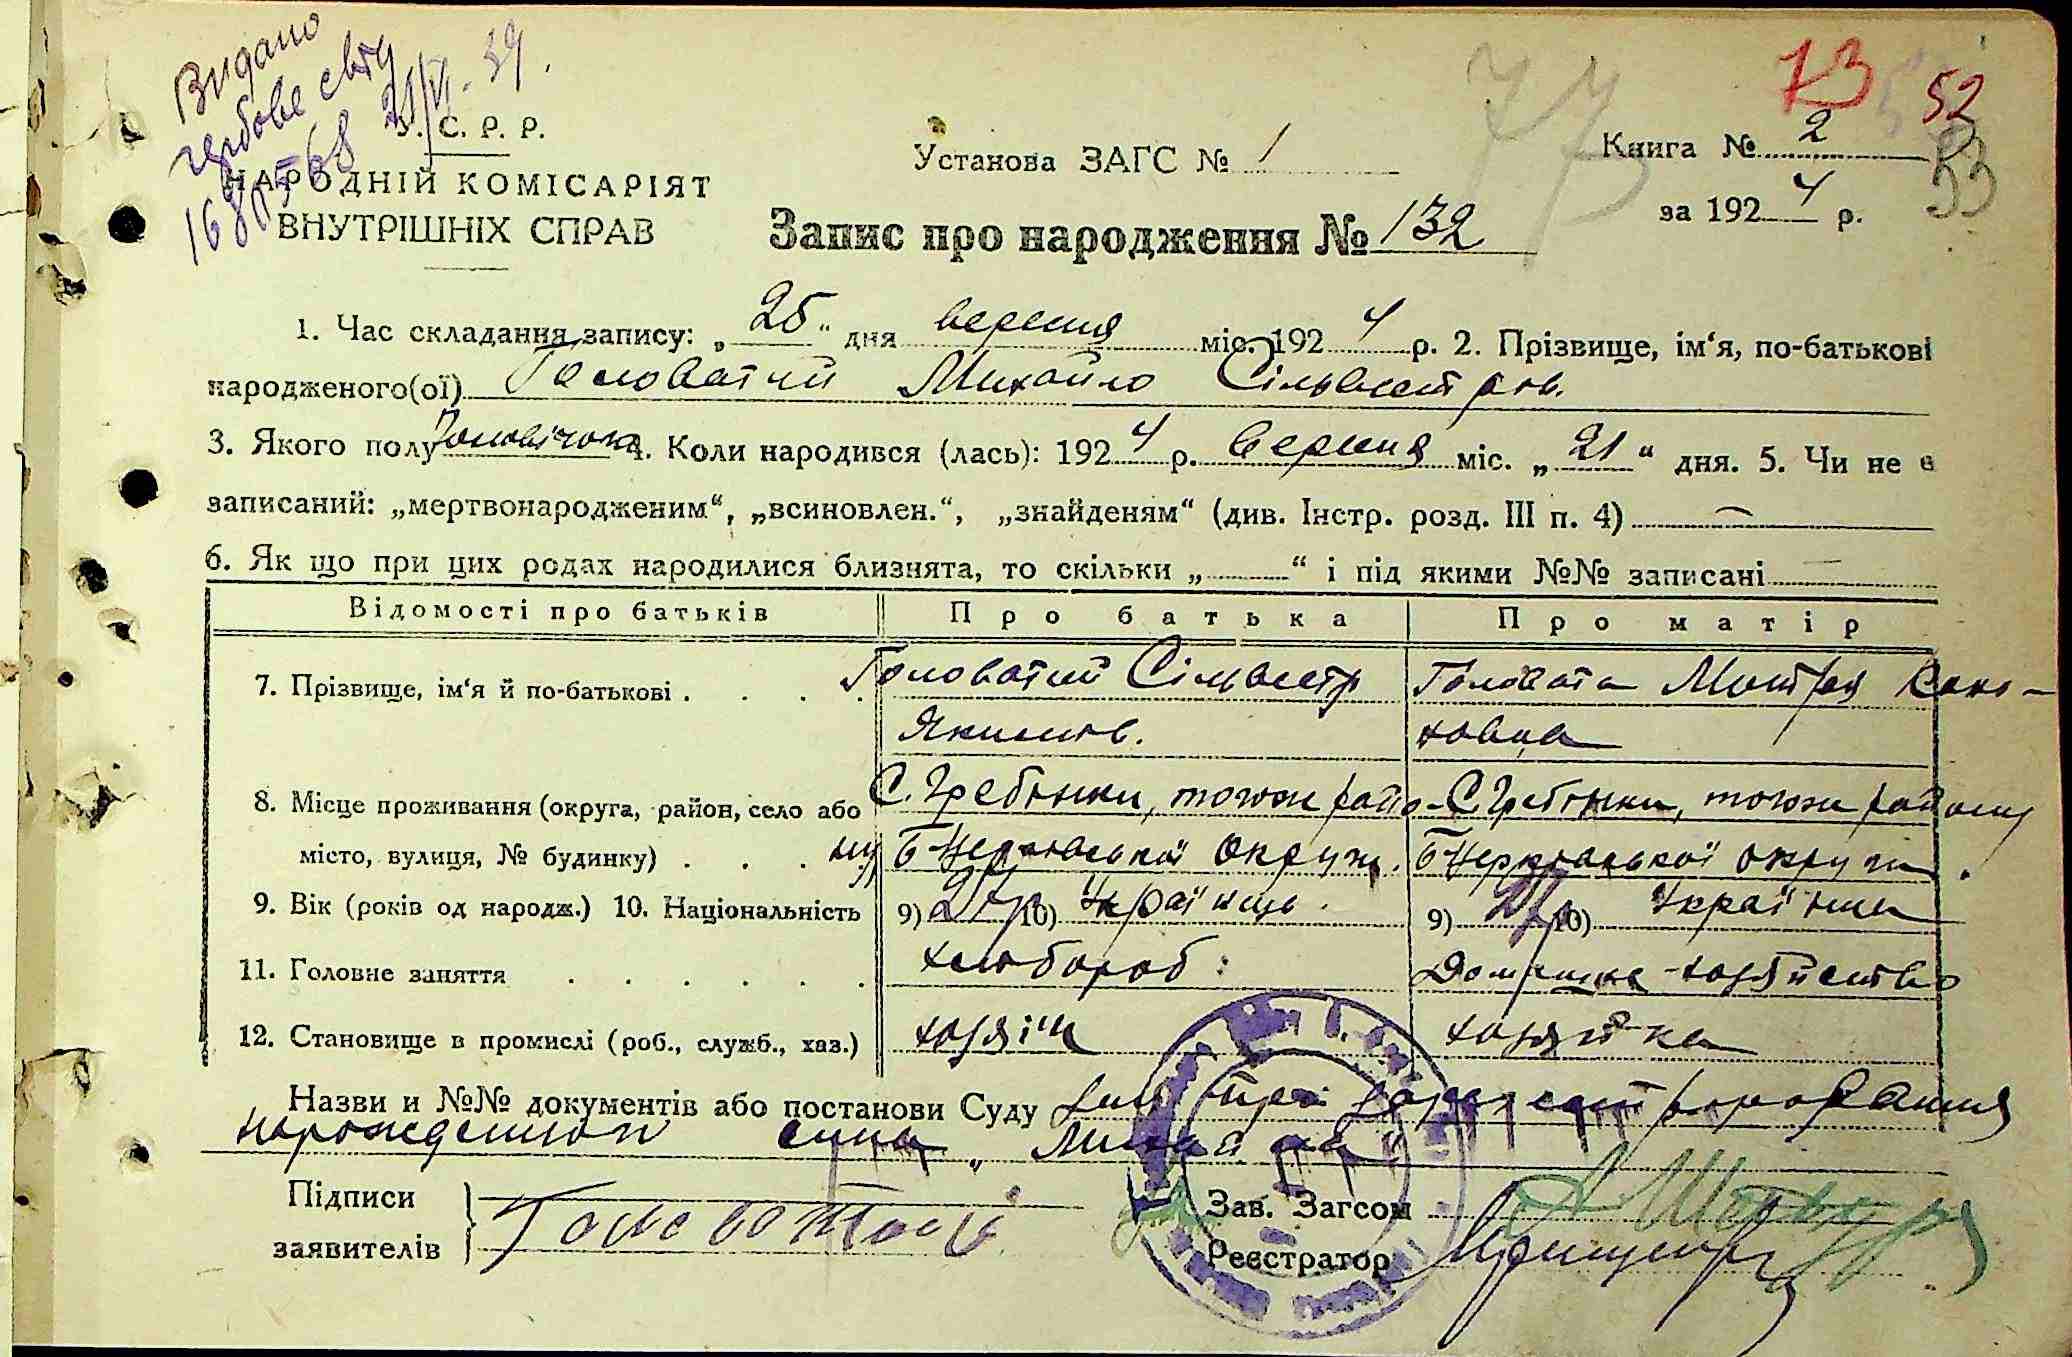 Видано
гербове свід
1680568 21/VI-39.
У. С. Р. Р.
НАРОДНІЙ КОМІСАРІЯТ
ВНУТРІШНІХ СПРАВ
Установа ЗАГС № 1
77
73
52
53
Книга № 2
за 1924 р.
Запис про народження № 132
1. Час складання запису: „25“ дня вересня міс. 1924 р. 2. Прізвище, ім‘я, по-батькові
народженого(ої) Головатий Михайло Сільвестров.
3. Якого полу Чоловічого 4. Коли народився (лась): 1924 р. вересня міс. „21“ дня. 5. Чи не є
записаний: „мертвонародженим“, „всиновлен.“, „знайденям“ (див. Інстр. розд. III п. 4) —
6. Як що при цих родах народилися близнята, то скільки „ “ і під якими №№ записані —
Відомості про батьків Про батька Про матір
7. Прізвище, ім‘я й по-батькові . . . . Головатий Сільвестр Головата Мотря Коно-
Якимов. новна
8. Місце проживання (округа, район, село або С. Гребінки, тожи райо- С. Гребінки, тожи району
місто, вулиця, № будинку) . . . ну, Б-Церковської округи. Б-Церковської округи.
9. Вік (років од народж.) 10. Національність 9) 27 р. 10) Українець. 9) 10) Українка
11. Головне заняття . . . . . . хлібороб: Домашнє хозяйство
12. Становище в промислі (роб., служб., хаз.) хозяїн хозяйка
Назви и №№ документів або постанови Суду про зареєстровования
народження сина „Михайла“
Підписи
заявителів Головатий
Зав. Загсом
Реєстратор